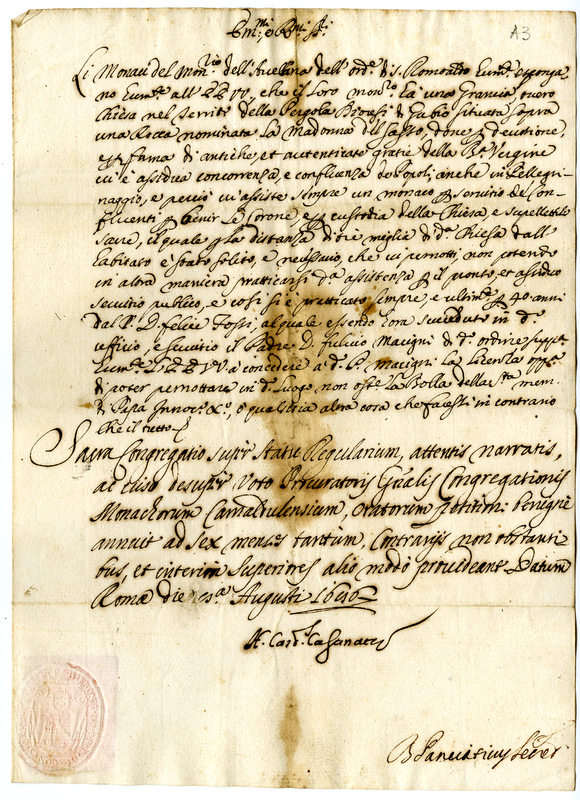 A3
Em.mi e R.mi Sri
Li Monaci del Mon.rio dell'Avellina dell'ord.e di S. Romualdo hum.e espongo
no hum.e all'EE VV, che il loro mon.ro ha una Grancia, overo
Chiesa nel territ.o della Pergola Diocesi di Gubio situata sopra
una Rocca nominata la Madonna del Sasso, dove p devotione,
e p fama di antiche, et autenticate gratie della B. Vergine
vi è assidua concorrenza, e confluenza de Popoli, anche in Pellegri-
naggio, e perciò vi assiste sempre un monaco p servitio de Con-
fluenti p benir le corone, e p custodia della Chiesa, e supellettile
sacre, il quale p la distanza di tre miglia di d.a Chiesa dall'
habitato è stato solito, e necessario, che vi pernotti, non potendo
in altra maniera pratticarsi d.a assistenza p il pronto, et assiduo
servitio publico, e così si è pratticato sempre, e ultim.e p 40 anni
dal P. D. Felice Tosi, al quale essendo hora succeduto in d.o
ufficio, e servitio il Padre D. Fulvio Macigni di d.o ordine supp.a
hum.e l'EE VV a concedere a d.o P. Macigni la licenza opp.a
di poter pernottare in d.o luogo non ost.e la Bolla della S.ta mem.
di Papa Innoc.o X.o, o qualsivia altra cosa che facessi in contrario
che il tutto
Sacra Congregatio super Statu Regularium, attentis narratis,
ac viso desuper Voto Procuratoris Gñalis Congregationis
Monachorum Camaldulensium, oratorum petitioni benigne
annuit ad sex menses tantum, Contrarijs non obstanti
bus, et interim Superiores alio modo provideant. Datum
Romæ die Augusti
H. Card. Casanate
B Panciaticus Secret